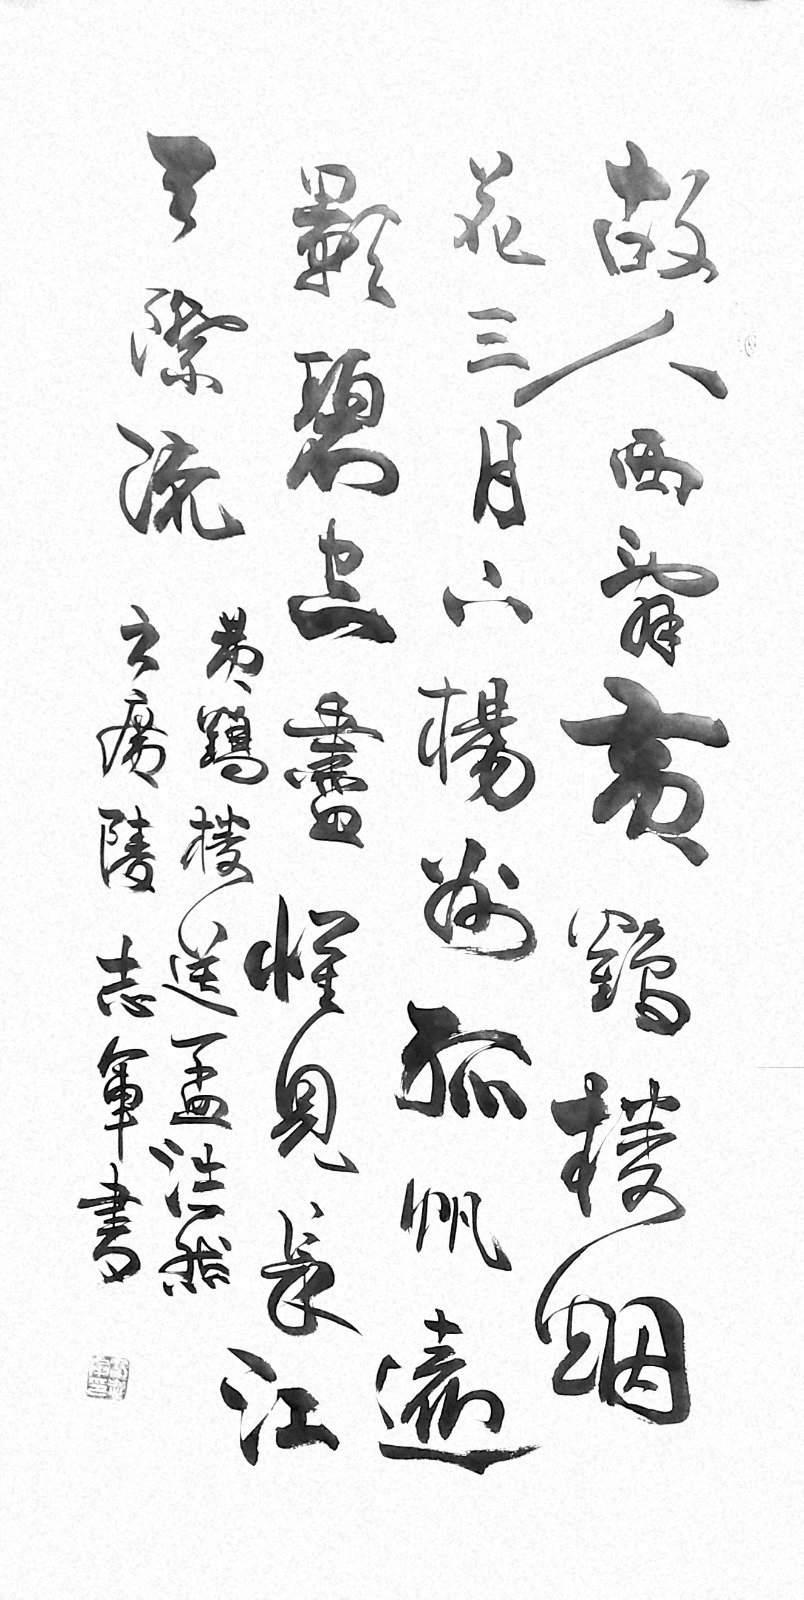 故人西辭黃鶴樓烟
花三月下楊州孤帆遠
影碧空盡惟見長江
天際流
黃鶴樓送孟浩然
之廣陵志軍書